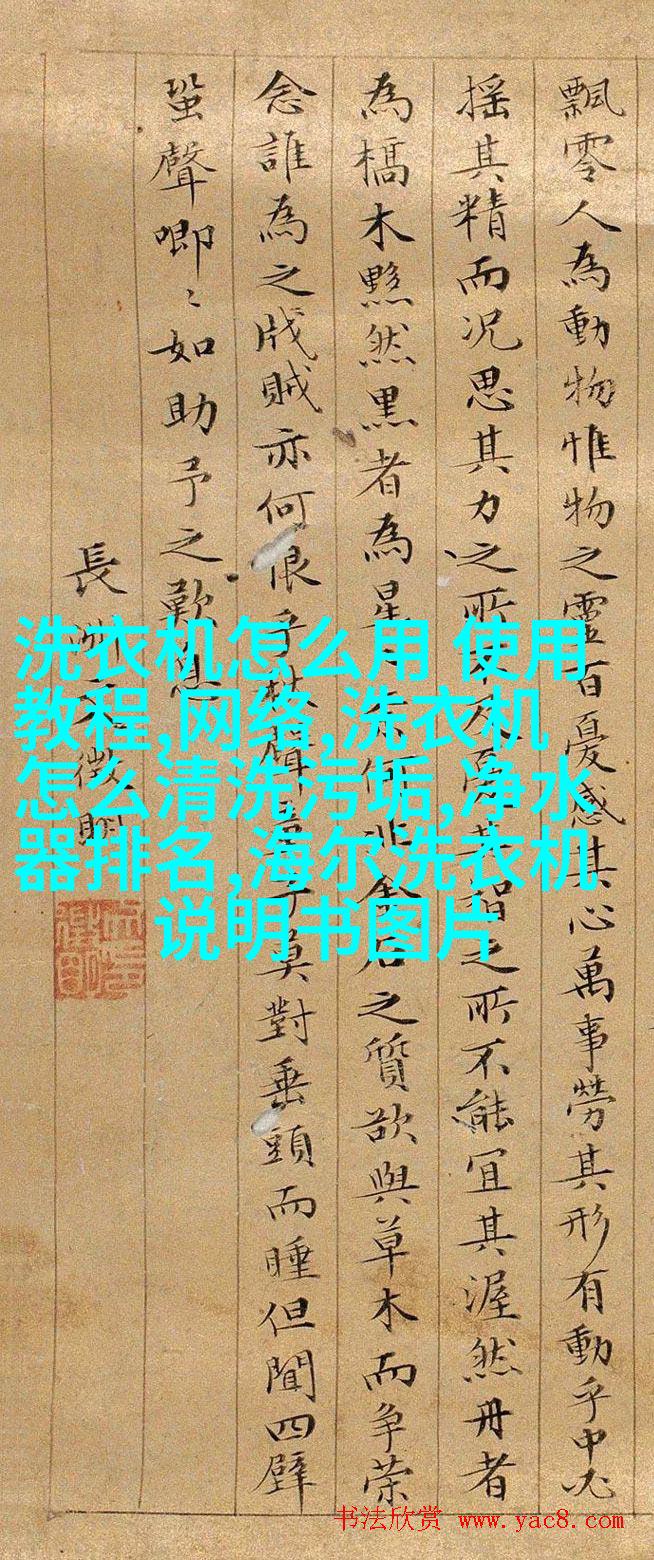 飄零人為動物惟物之靈百憂感其心萬事勞其形有動乎中必
搖其精而況思其力之所不及憂其智之所不能宜其渥然丹者
為槁木黟然黒者為星〻奈何非金石之質欲與草木而争荣
念誰為之戕賊亦何恨乎秋聲童子莫對垂頭而睡但聞四壁
蛩聲唧〻如助予之歎息
長洲文徵明
洗衣机怎么用 使用
教程,网络,洗衣机
怎么清洗污垢,净水
器排名,海尔洗衣机
说明书图片
书法欣赏 www.yac8.com